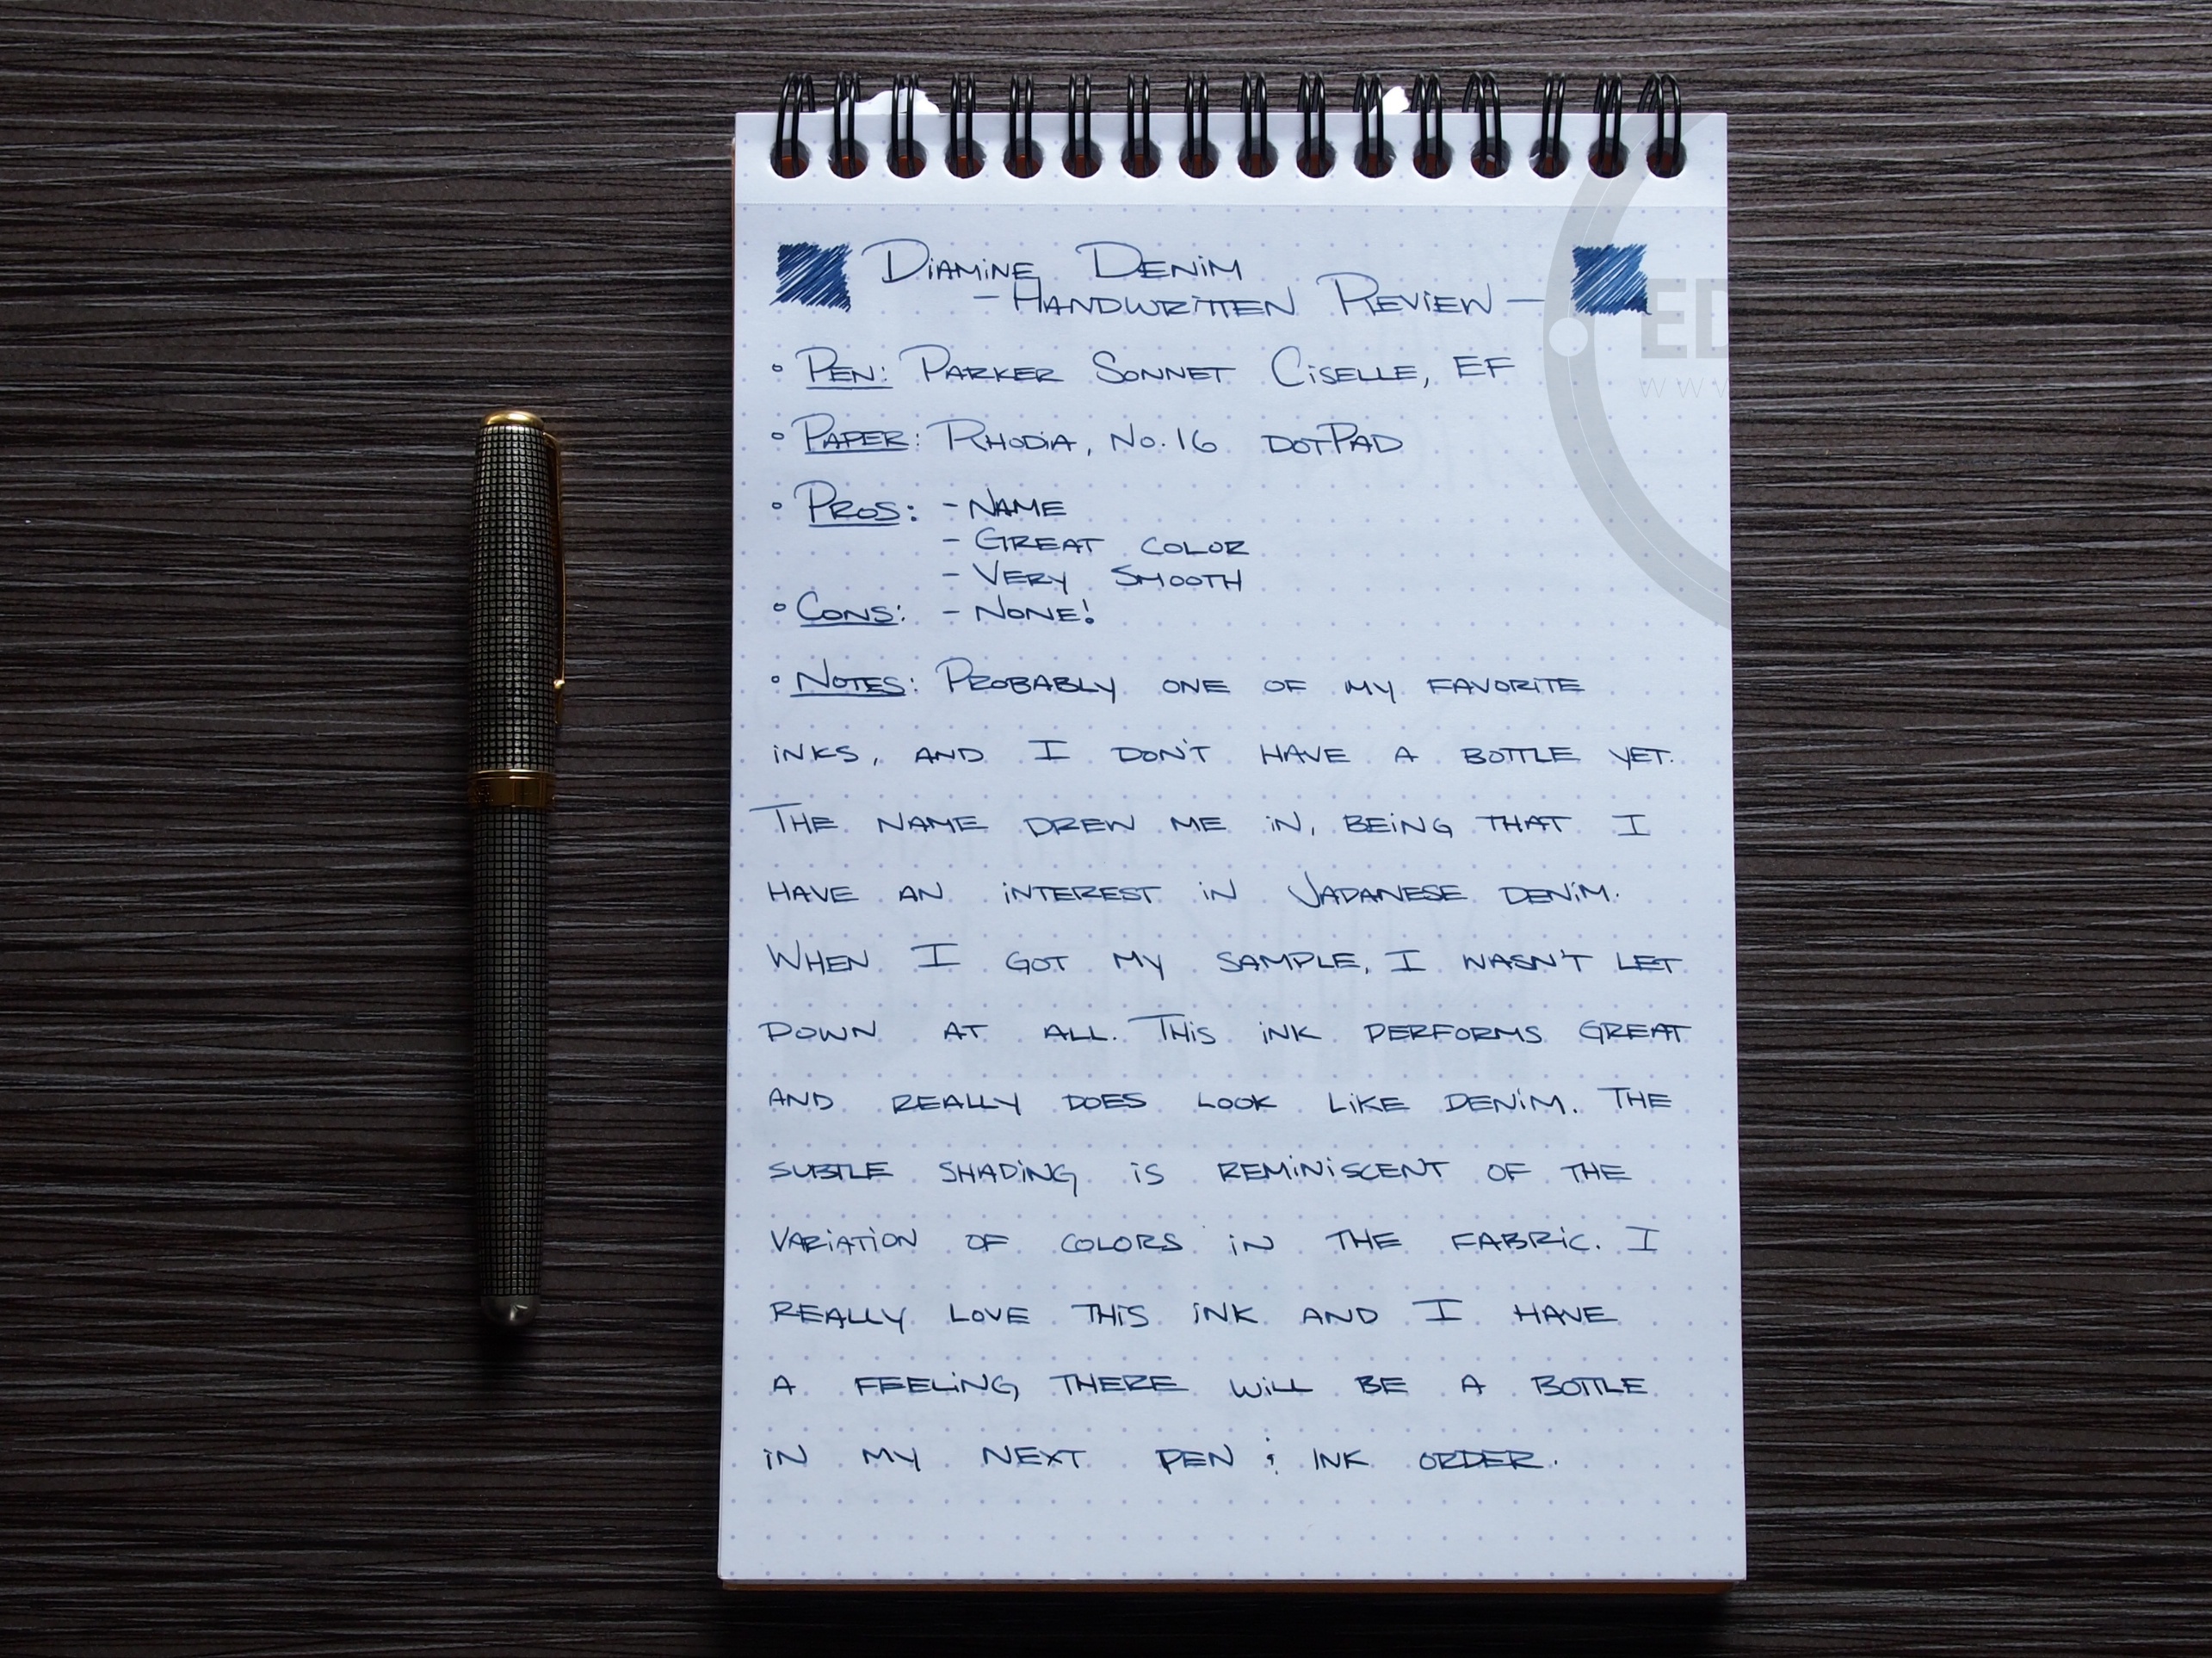 DIAMINE DENIM
- HANDWRITTEN REVIEW -
ED
WWW
° PEN: PARKER SONNET CISELLE, EF
° PAPER: RHODIA, NO. 16 DOTPAD
° PROS: - NAME
- GREAT COLOR
- VERY SMOOTH
° CONS: - NONE!
° NOTES: PROBABLY ONE OF MY FAVORITE
INKS, AND I DON'T HAVE A BOTTLE YET.
THE NAME DREW ME IN, BEING THAT I
HAVE AN INTEREST IN JAPANESE DENIM.
WHEN I GOT MY SAMPLE, I WASN'T LET
DOWN AT ALL. THIS INK PERFORMS GREAT
AND REALLY DOES LOOK LIKE DENIM. THE
SUBTLE SHADING IS REMINISCENT OF THE
VARIATION OF COLORS IN THE FABRIC. I
REALLY LOVE THIS INK AND I HAVE
A FEELING THERE WILL BE A BOTTLE
IN MY NEXT PEN & INK ORDER.